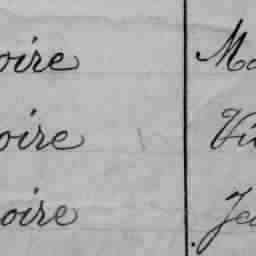 oire Ma
oire Vi
oire Je